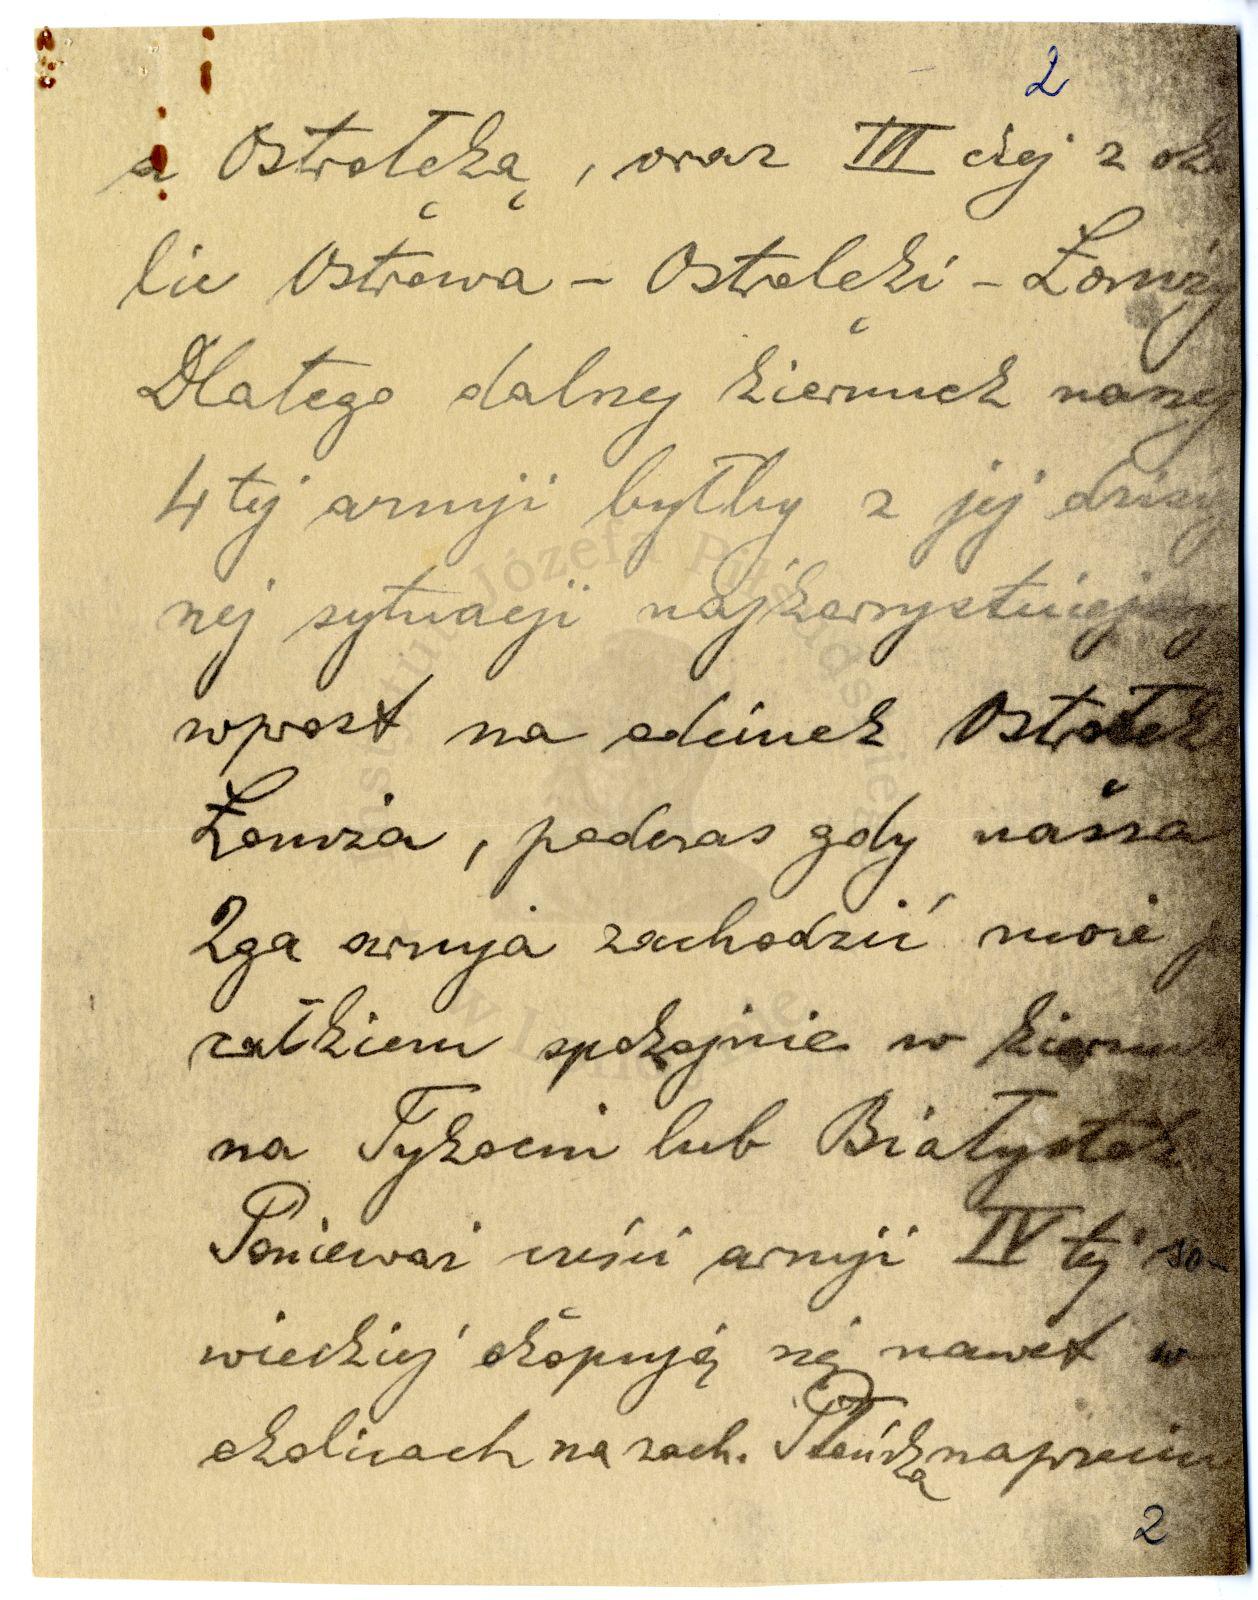 2
a Ostrołęką, oraz III ciej z oko
lic Ostrowa - Ostrołęki - Łomży
Dlatego dalszy kierunek naszej
4tej armji byłby z jej dzisiej
nej sytuacji najkorzystniejszy
wprost na odcinek Ostrołęk
Łomża, podczas gdy nasza
2ga armja zachodzić może
całkiem spokojnie w kierunk
na Tykocin lub Białystok
Ponieważ części armji IV tej so-
wieckiej okopują się nawet w
okolicach na zach. Płońska naprzeciw
2
Instytut Józefa Piłsudskiego
w Londynie